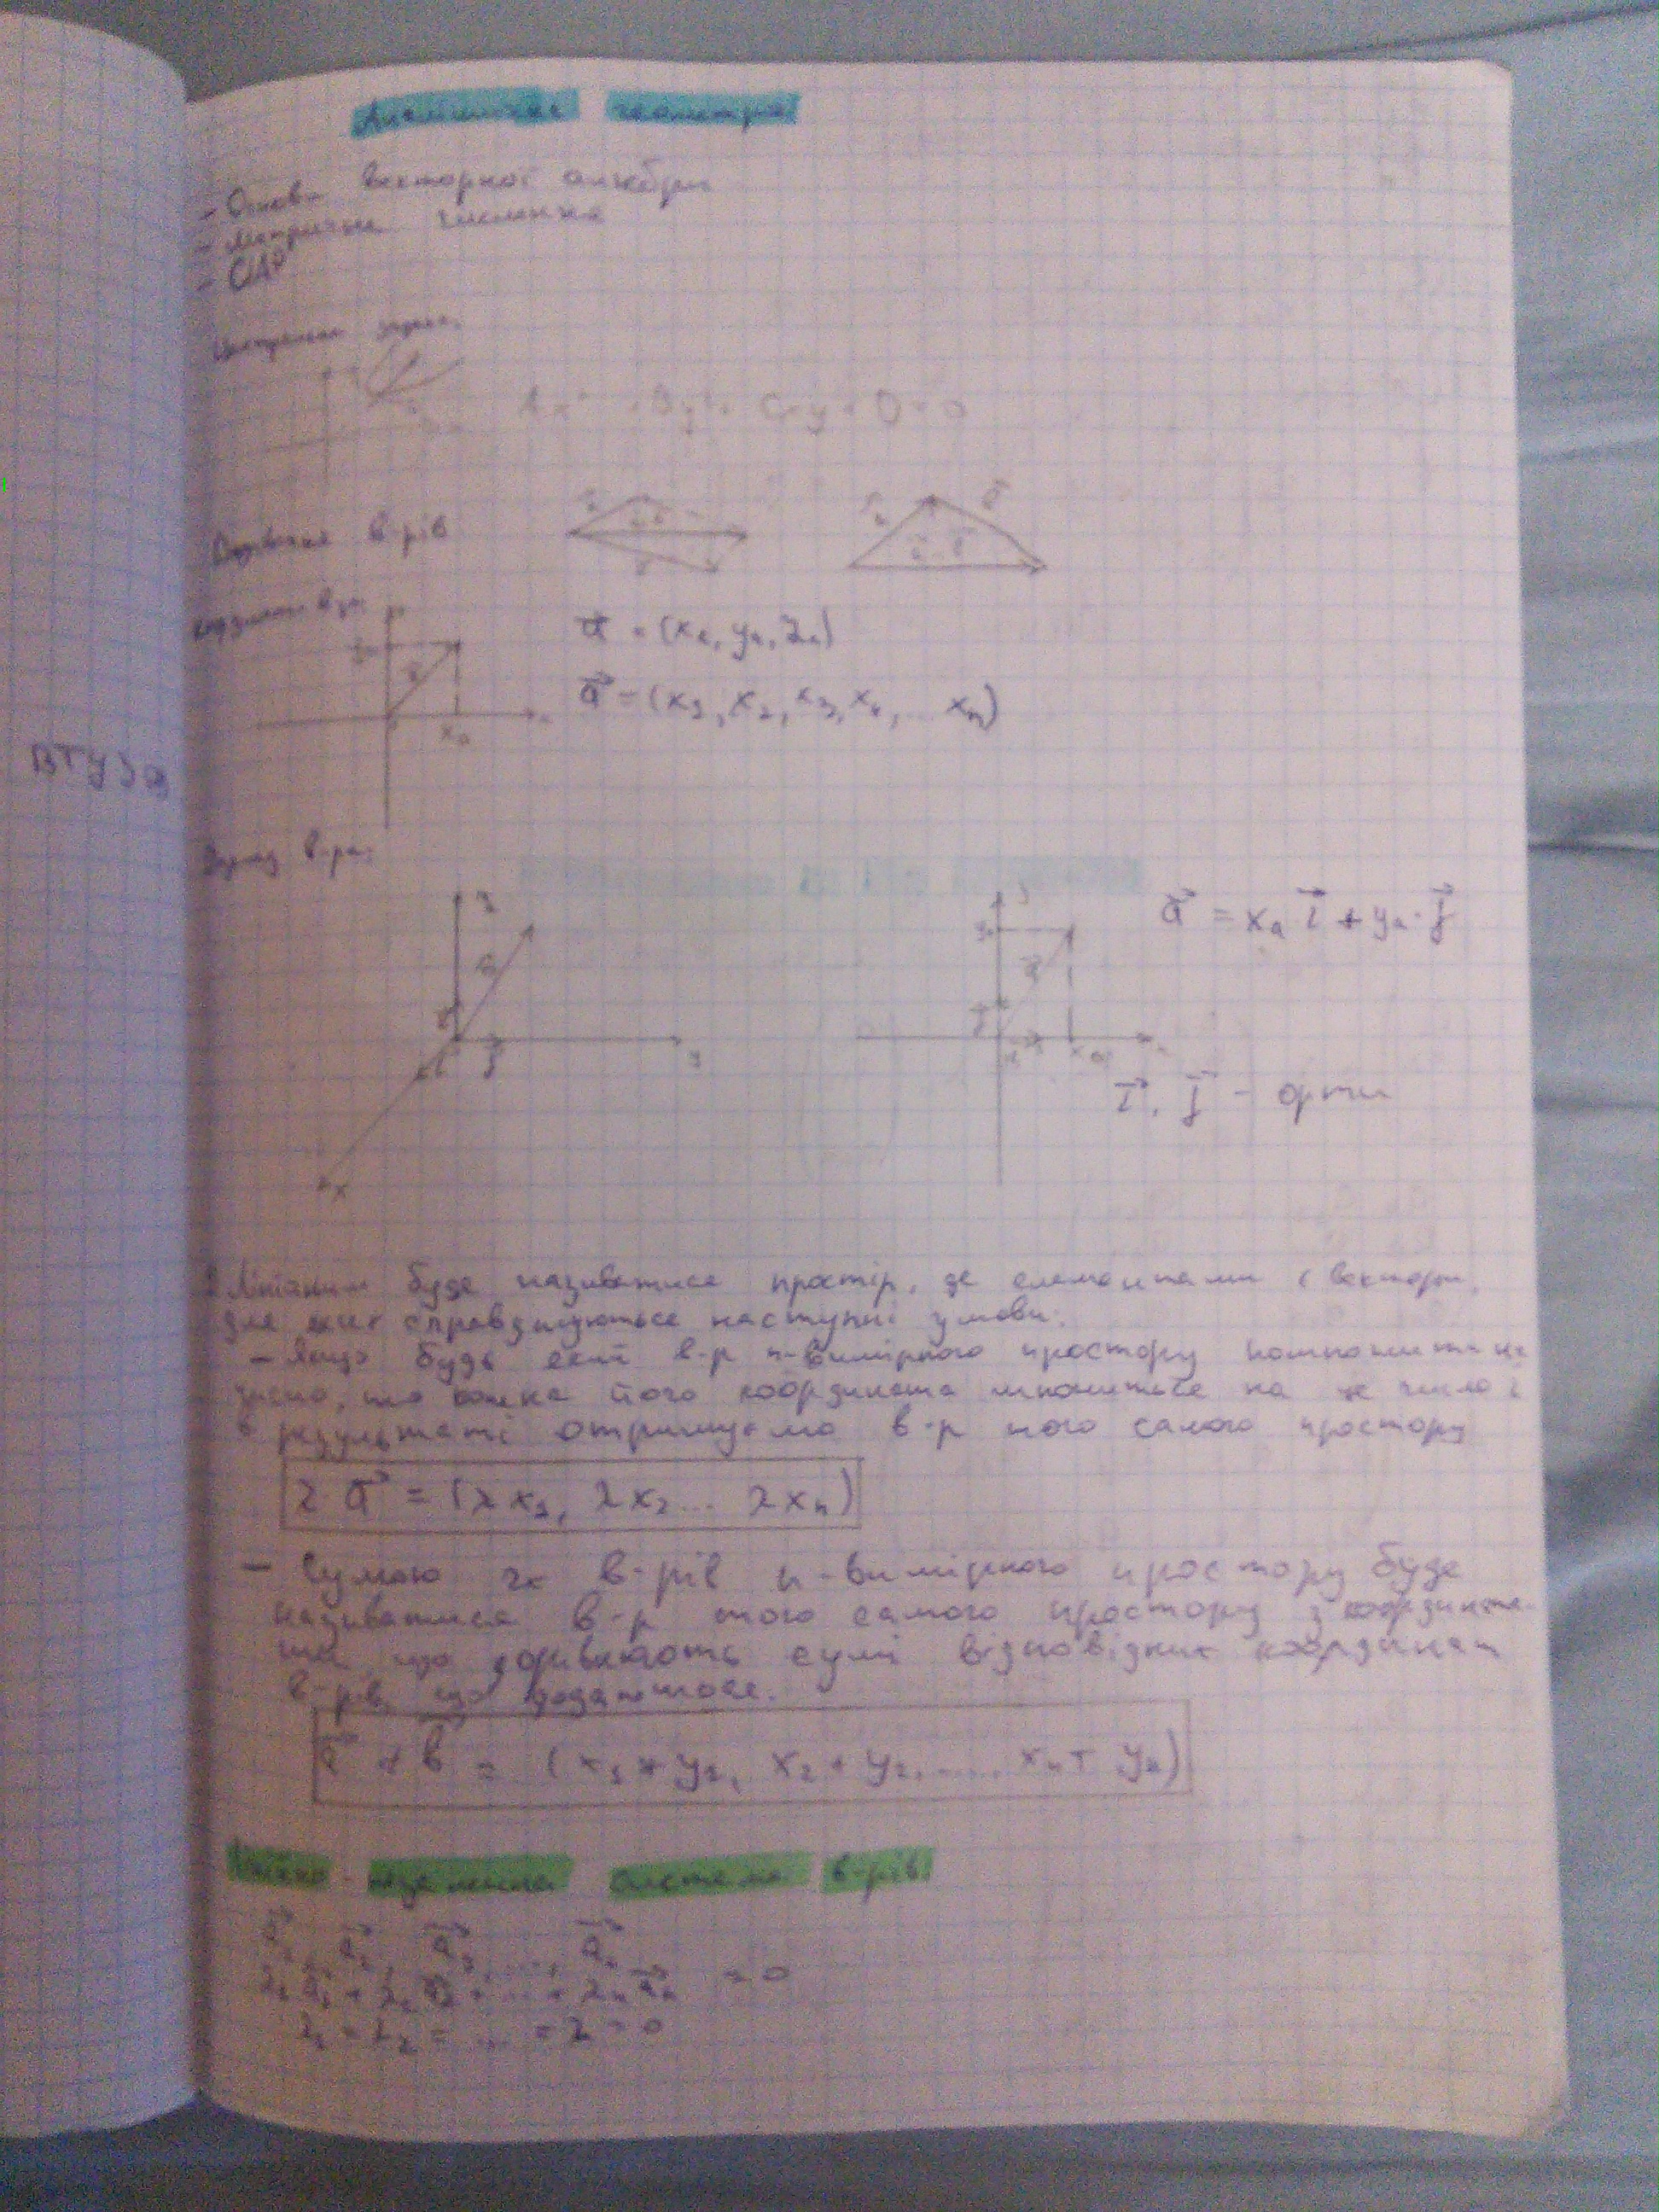 Аналітична геометрія
- Основи векторної алгебри
- Матричне числення
- САР
Ax² + By² + Cxy + D = 0
Додавання в-рів
a⃗ = (xₐ, yₐ, zₐ)
a⃗ = (x₁, x₂, x₃, x₄, ... xₙ)
ВТУЗів
a⃗ = xₐ i⃗ + yₐ · j⃗
i⃗, j⃗ - орти
Лінійним буде називатися простір, де елементами є вектори,
для яких справджуються наступні умови:
- Якщо будь який в-р n-вимірного простору помножити на
число, то кожна його координата множиться на це число і
в результаті отримуємо в-р того самого простору
λ · a⃗ = (λx₁, λx₂ ... λxₙ)
- Сумою 2х в-рів n-вимірного простору буде
називатися в-р того самого простору з координата-
ми, що дорівнюють сумі відповідних координат
в-рів, що додаються.
a⃗ + b⃗ = (x₁ + y₁, x₂ + y₂, ..., xₙ + yₙ)
Лінійно-незалежна система в-рів
a⃗₁, a⃗₂, a⃗₃, ..., a⃗ₙ
λ₁a⃗₁ + λ₂a⃗₂ + ... + λₙa⃗ₙ = 0
λ₁ = λ₂ = ... = λ = 0